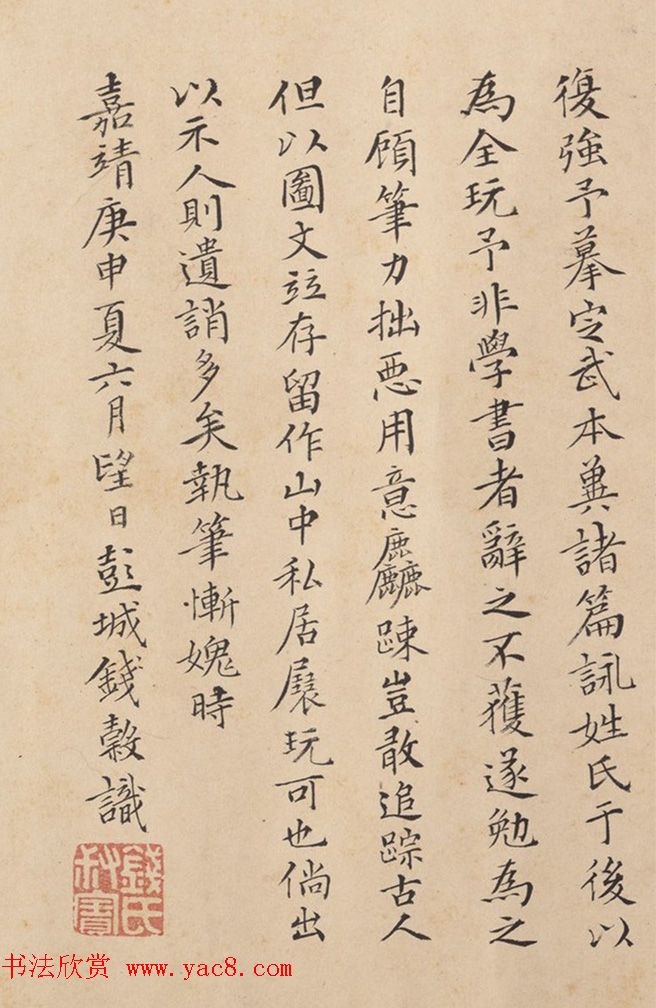 復強予摹定武本兼諸篇詠姓氏于後以
為全玩予非學書者辭之不獲遂勉為之
自顧筆力拙惡用意麤踈豈敢追踪古人
但以圖文竝存留作山中私居展玩可也倘出
以示人則遺誚多矣執筆慚媿時
嘉靖庚申夏六月朢日彭城錢穀識
錢氏
叔寶
书法欣赏 www.yac8.com